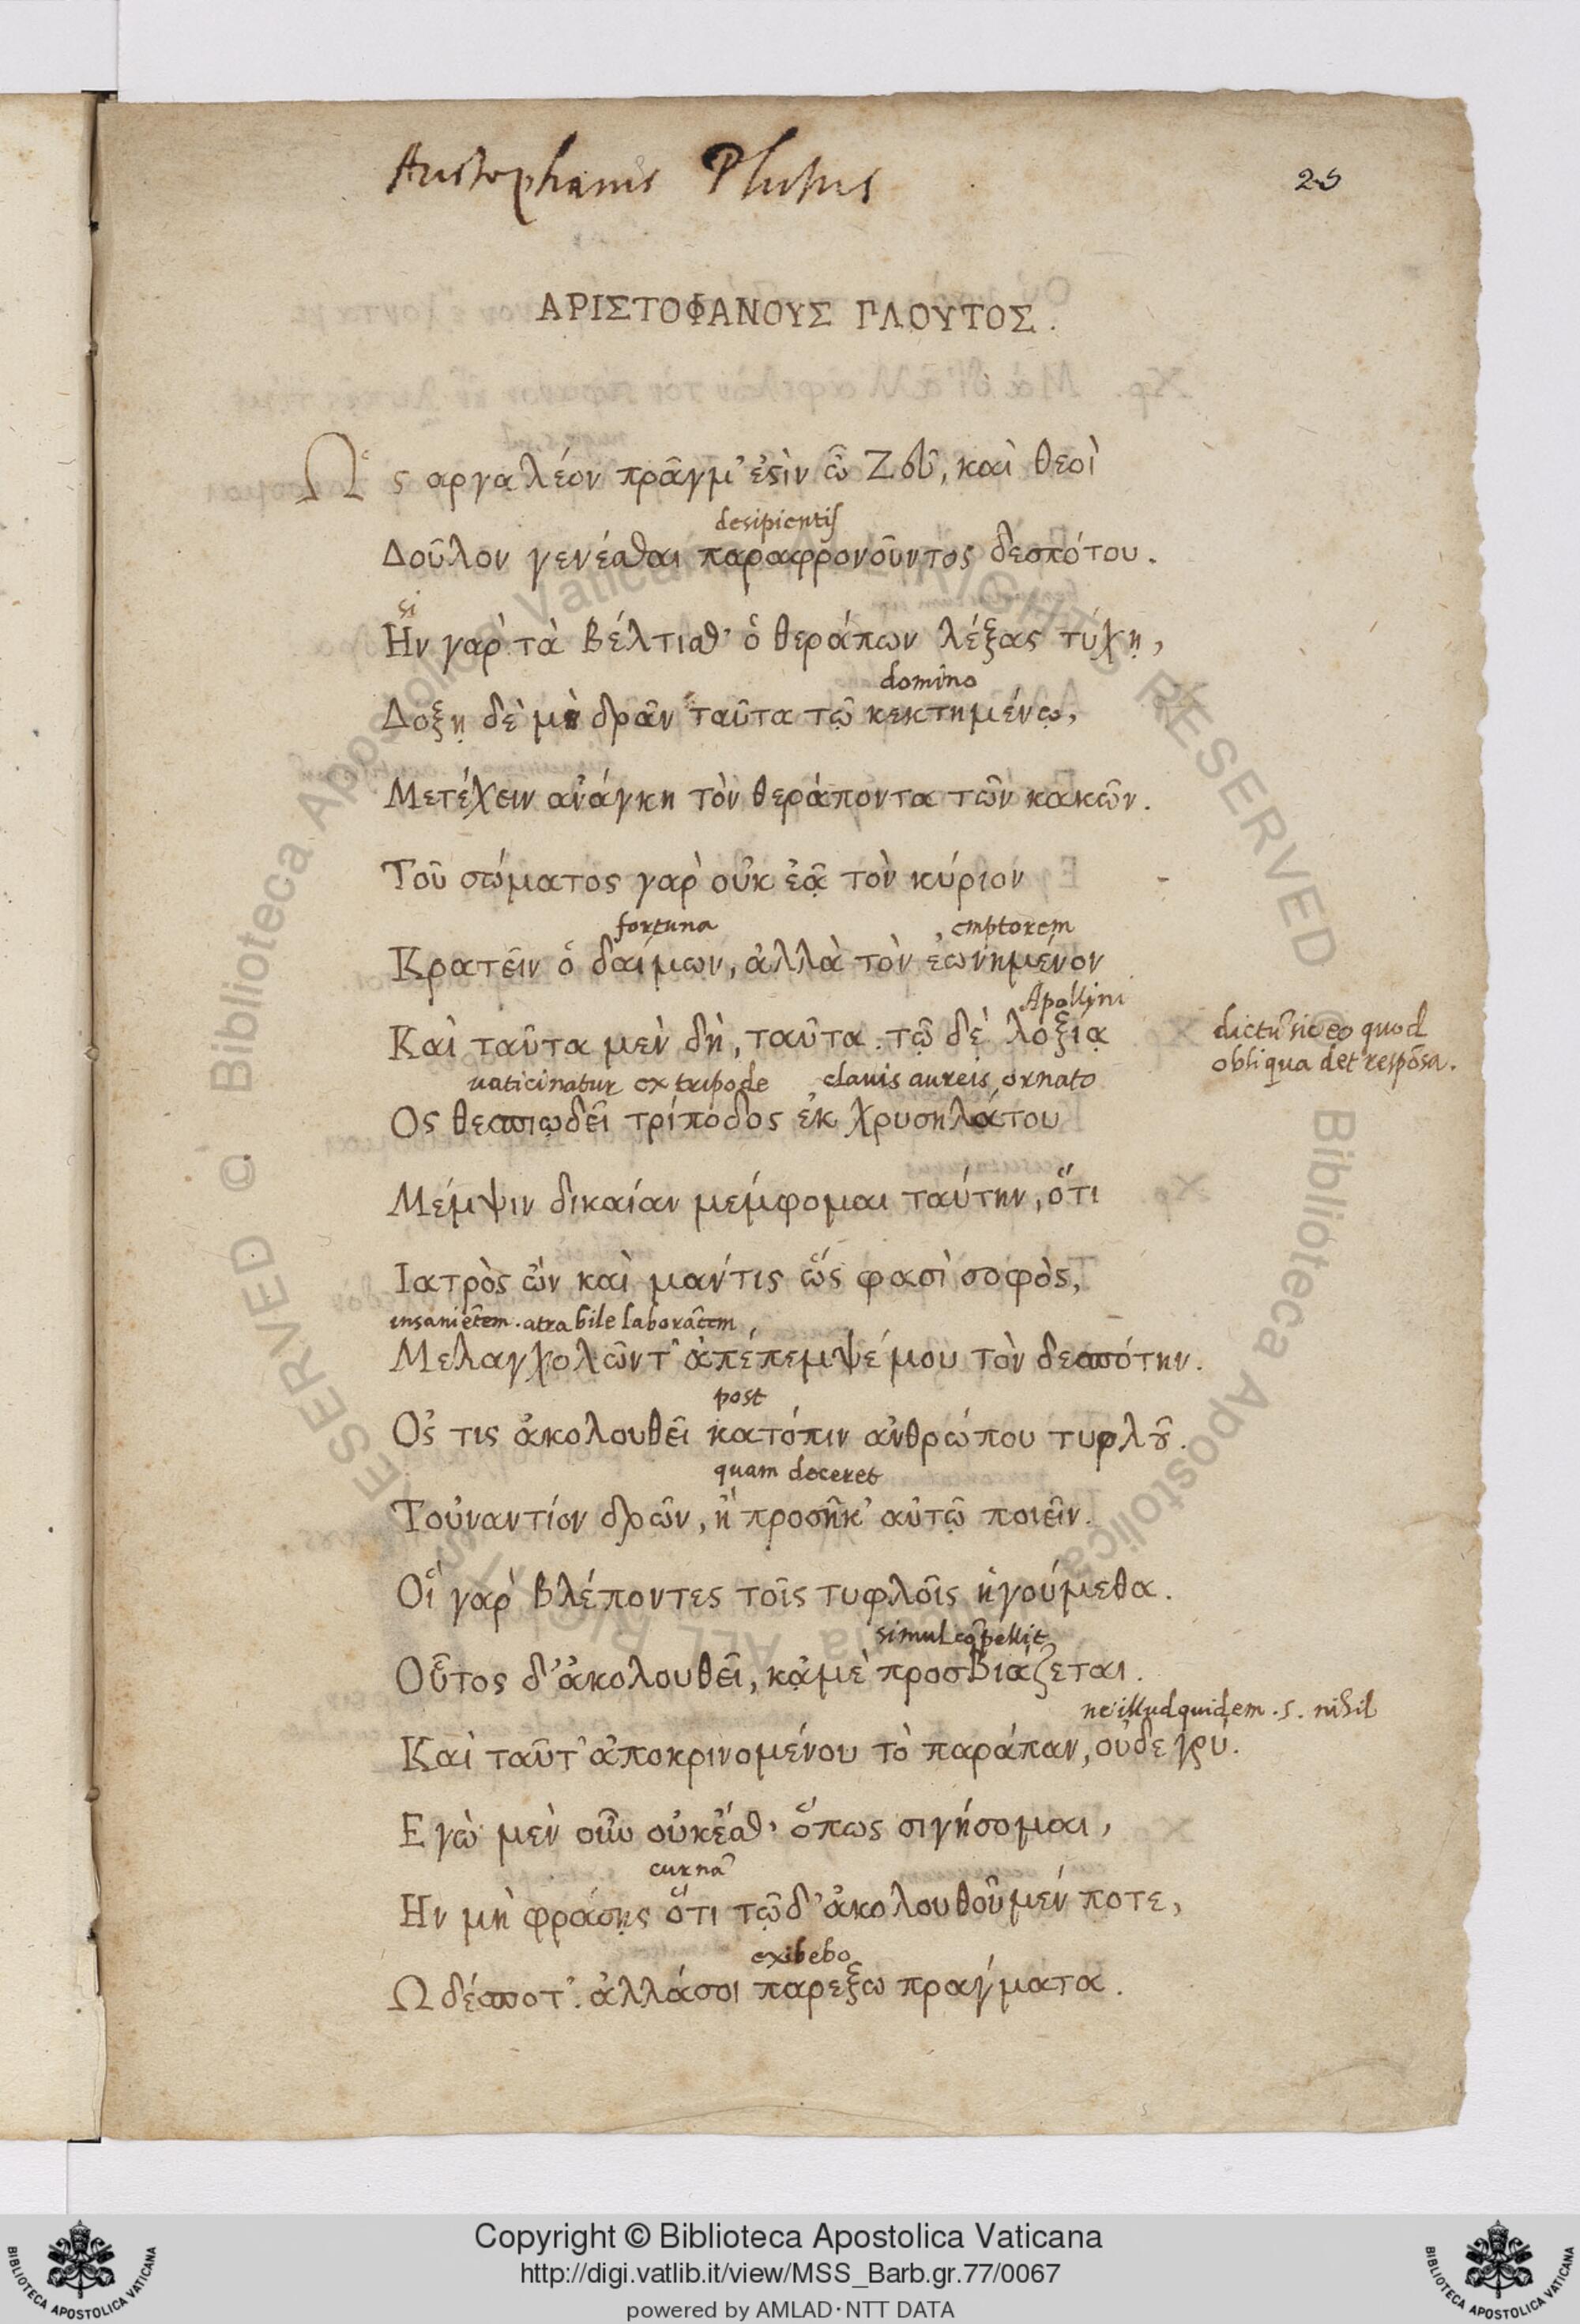 Aristophanis Plutus
25
ΑΡΙΣΤΟΦΑΝΟΥΣ ΠΛΟΥΤΟΣ.
Ὡς αργαλέον πρᾶγμ' ἐςὶν ὦ Ζεῦ, καὶ θεοὶ
desipientis
Δοῦλον γενέσθαι παραφρονοῦντος δεσπότου.
εἰ
Ἢν γαρ τὰ βέλτισθ' ὁ θεράπων λέξας τύχῃ,
domino
Δοξῃ δὲ μὴ δρᾶν ταῦτα τῷ κεκτημένῳ,
Μετέχειν ανάγκη τὸν θεράποντα τῶν κακῶν.
Τοῦ σώματος γαρ οὐκ ἐᾷ τὸν κύριον
fortuna emptorem
Κρατεῖν ὁ δαίμων, ἀλλὰ τὸν ἐωνημένον
Apollini
Καὶ ταῦτα μεν δὴ, ταῦτα. τῷ δὲ λοξίᾳ
dictũ sic eo quod
obliqua det respõsa.
vaticinatur ex tripode clavis aureis ornato
Ος θεσπιῳδεῖ τρίποδος ἐκ χρυσηλάτου
Μέμψιν δικαίαν μέμφομαι ταύτην, ὅτι
Ιατρὸς ὢν καὶ μάντις ὥς φασὶ σοφὸς,
insaniẽtem. atra bile laborãtem
Μελαγχολῶντ' ἀπέπεμψέ μου τὸν δεσπότην.
post
Ος τις ἀκολουθεῖ κατόπιν ανθρώπου τυφλȣ͂.
quam deceret
Τοὐναντίον δρῶν, ἢ προσῆκ' αὐτῷ ποιεῖν.
Οἵ γαρ βλέποντες τοῖς τυφλοῖς ἡγούμεθα.
simul cõpellit
Οὗτος δ' ἀκολουθεῖ, κᾀμὲ προσβιάζεται.
ne illud quidem .s. nihil
Καὶ ταῦτ' ἀποκρινομένου τὸ παράπαν, ουδε γρύ.
Εγὼ μεν οὖν οὐκ ἔσθ' ὅπως σιγήσομαι,
cur nã
Ην μὴ φράσῃς ὅτι τῷδ' ἀκολουθοῦμέν ποτε,
exibebo
Ω δέσποτ'. ἀλλά σοι παρεξω πραγματα.
© Biblioteca Apostolica Vaticana ALL RIGHTS RESERVED © Biblioteca Apostolica Vaticana ALL RIGHTS RESERVED
Copyright © Biblioteca Apostolica Vaticana
http://digi.vatlib.it/view/MSS_Barb.gr.77/0067
powered by AMLAD·NTT DATA
BIBLIOTECA APOSTOLICA VATICANA
BIBLIOTECA APOSTOLICA VATICANA